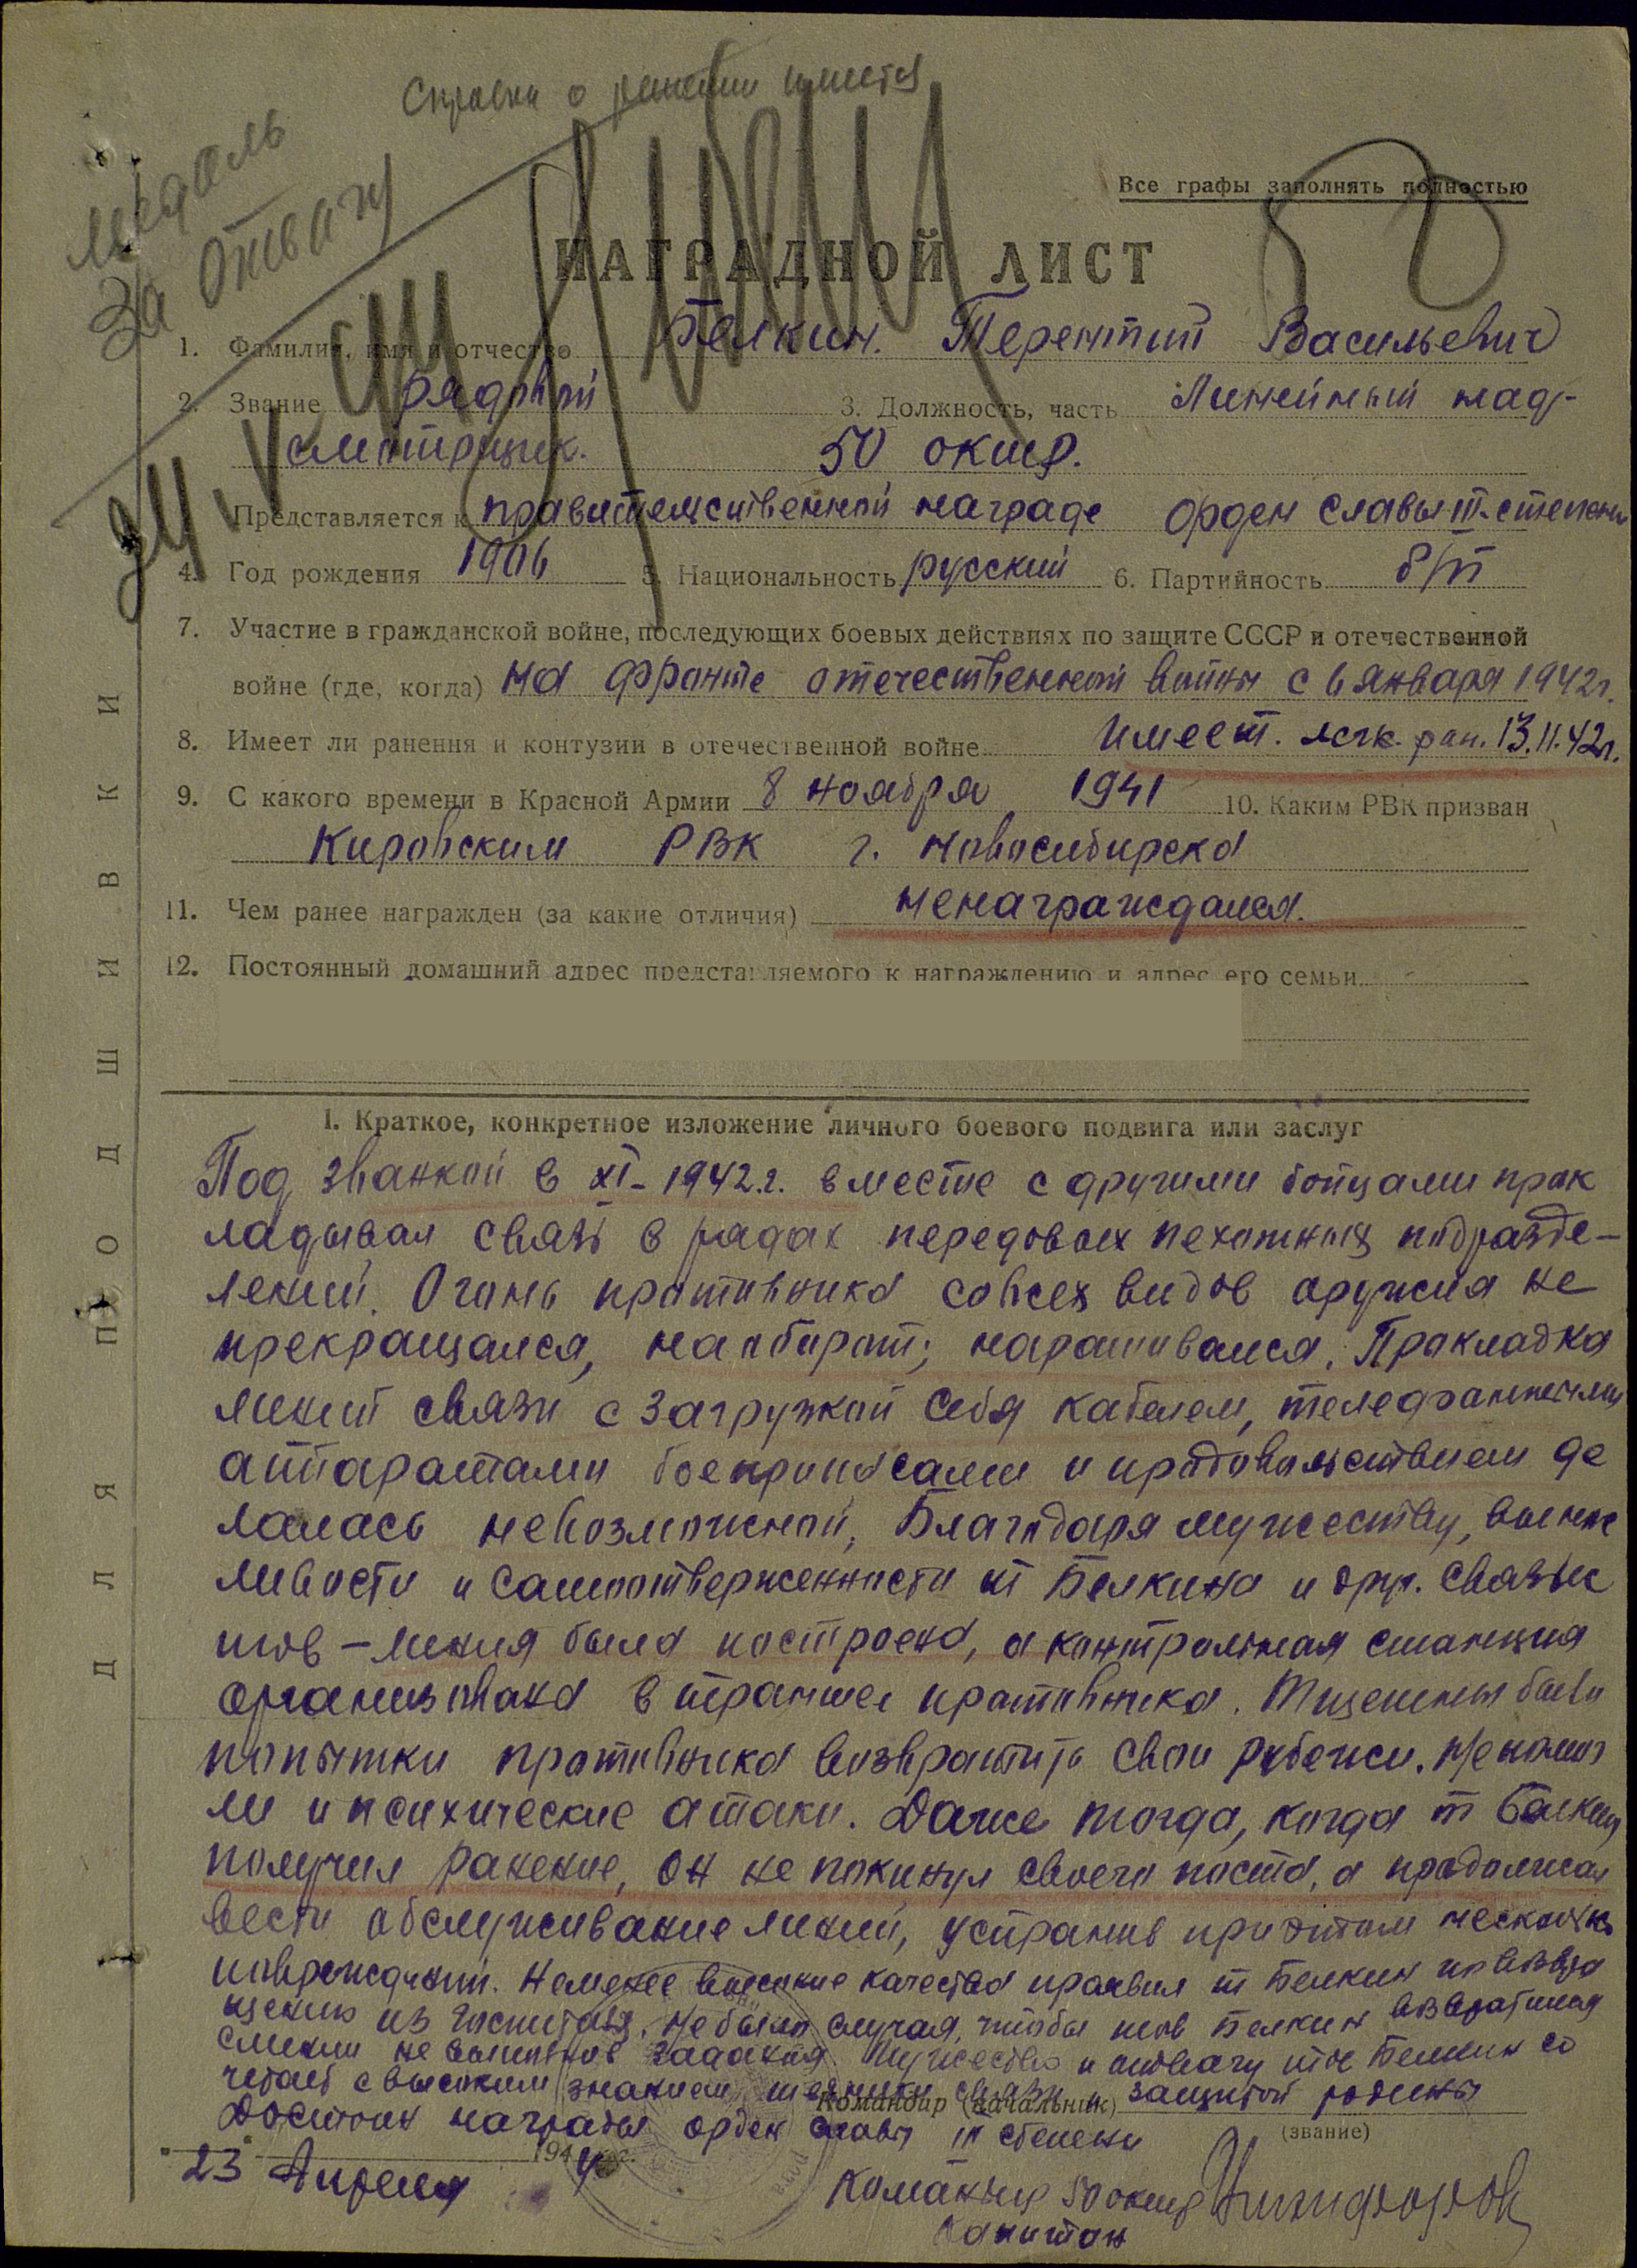 Справка о ранении имеется
медаль
За отвагу
Все графы заполнять полностью
НАГРАДНОЙ ЛИСТ
1. Фамилия, имя и отчество Белкин. Терентий Васильевич
2. Звание рядовой 3. Должность, часть Линейный над-
смотрщик. 50 окшр.
Представляется к правительственной награде орден славы III-степени
4. Год рождения 1906 5. Национальность русский 6. Партийность б/п
7. Участие в гражданской войне, последующих боевых действиях по защите СССР и отечественной
войне (где, когда) на фронте отечественной войны с 6 января 1942г.
8. Имеет ли ранения и контузии в отечественной войне имеет. легк. ран. 13.11.42г.
9. С какого времени в Красной Армии 8 ноября 1941 10. Каким РВК призван
Кировским РВК г. Новосибирска
11. Чем ранее награжден (за какие отличия) ненаграждался.
12. Постоянный домашний адрес представляемого к награждению и адрес его семьи
I. Краткое, конкретное изложение личного боевого подвига или заслуг
Под Званкой в XI-1942.г. вместе с другими бойцами прок
ладывал связь в рядах передовых пехотных подразде-
лений. Огонь противника совсех видов оружия не
прекращался, наоборот; наращивался. Прокладка
линий связи с загрузкой себя кабелем, телефонными
аппаратами боеприпасами и продовольствием де
лалась невозможной. Благодаря мужеству, вынос
ливости и самоотверженности т Белкина и друг. связис
тов - линия была построена, а контрольная станция
организована в траншее противника. Тщетны были
попытки противника возвратить свои рубежи. Не помог
ли и психические атаки. Даже тогда, когда т Белкин
получил ранение, он не покинул своего поста, а продолжал
вести обслуживание линий, устранив при этом несколько
повреждений. Неменее высокие качества проявил т Белкин по возвра
щению из госпиталя. Не было случая, чтобы тов Белкин возвратился
с линии не выполнив задания. Мужество и отвагу тов Белкин со
четает с высоким знанием техники связи и защитой родины
Командир (начальник)
(звание)
Достоин награды орден славы III степени
23 Апреля 1944 г.
Командир 50 окшр Никифоров
Капитан
ДЛЯ ПОДШИВКИ